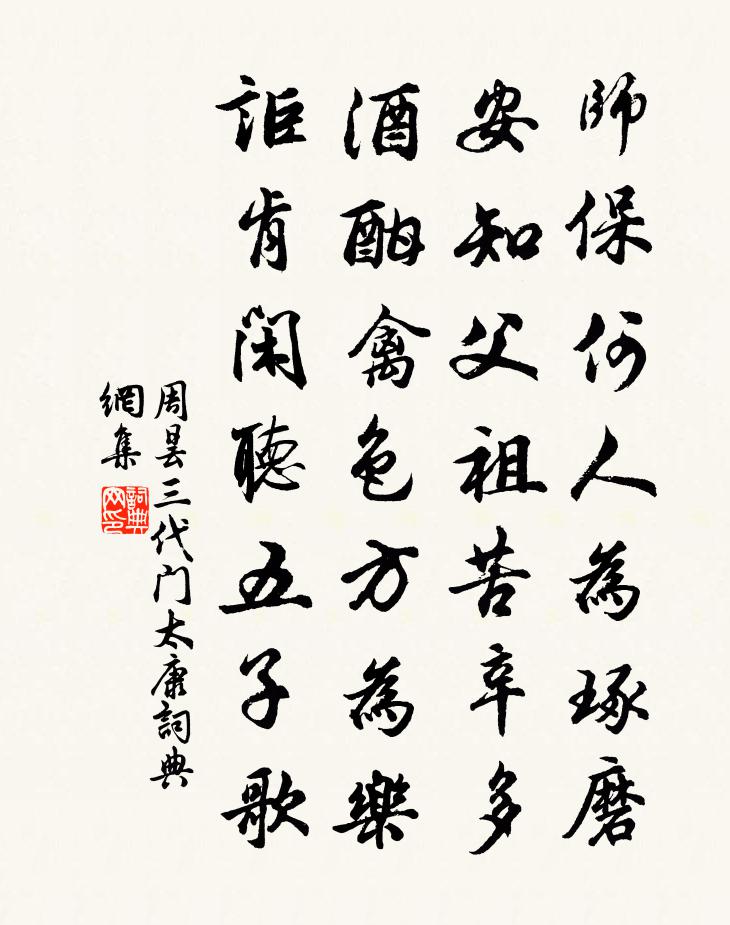 師保何人為琢磨
安知父祖苦辛多
酒酣禽色方為樂
詎肯閑聽五子歌
周曇三代門太康詞典
網集
詞典网印